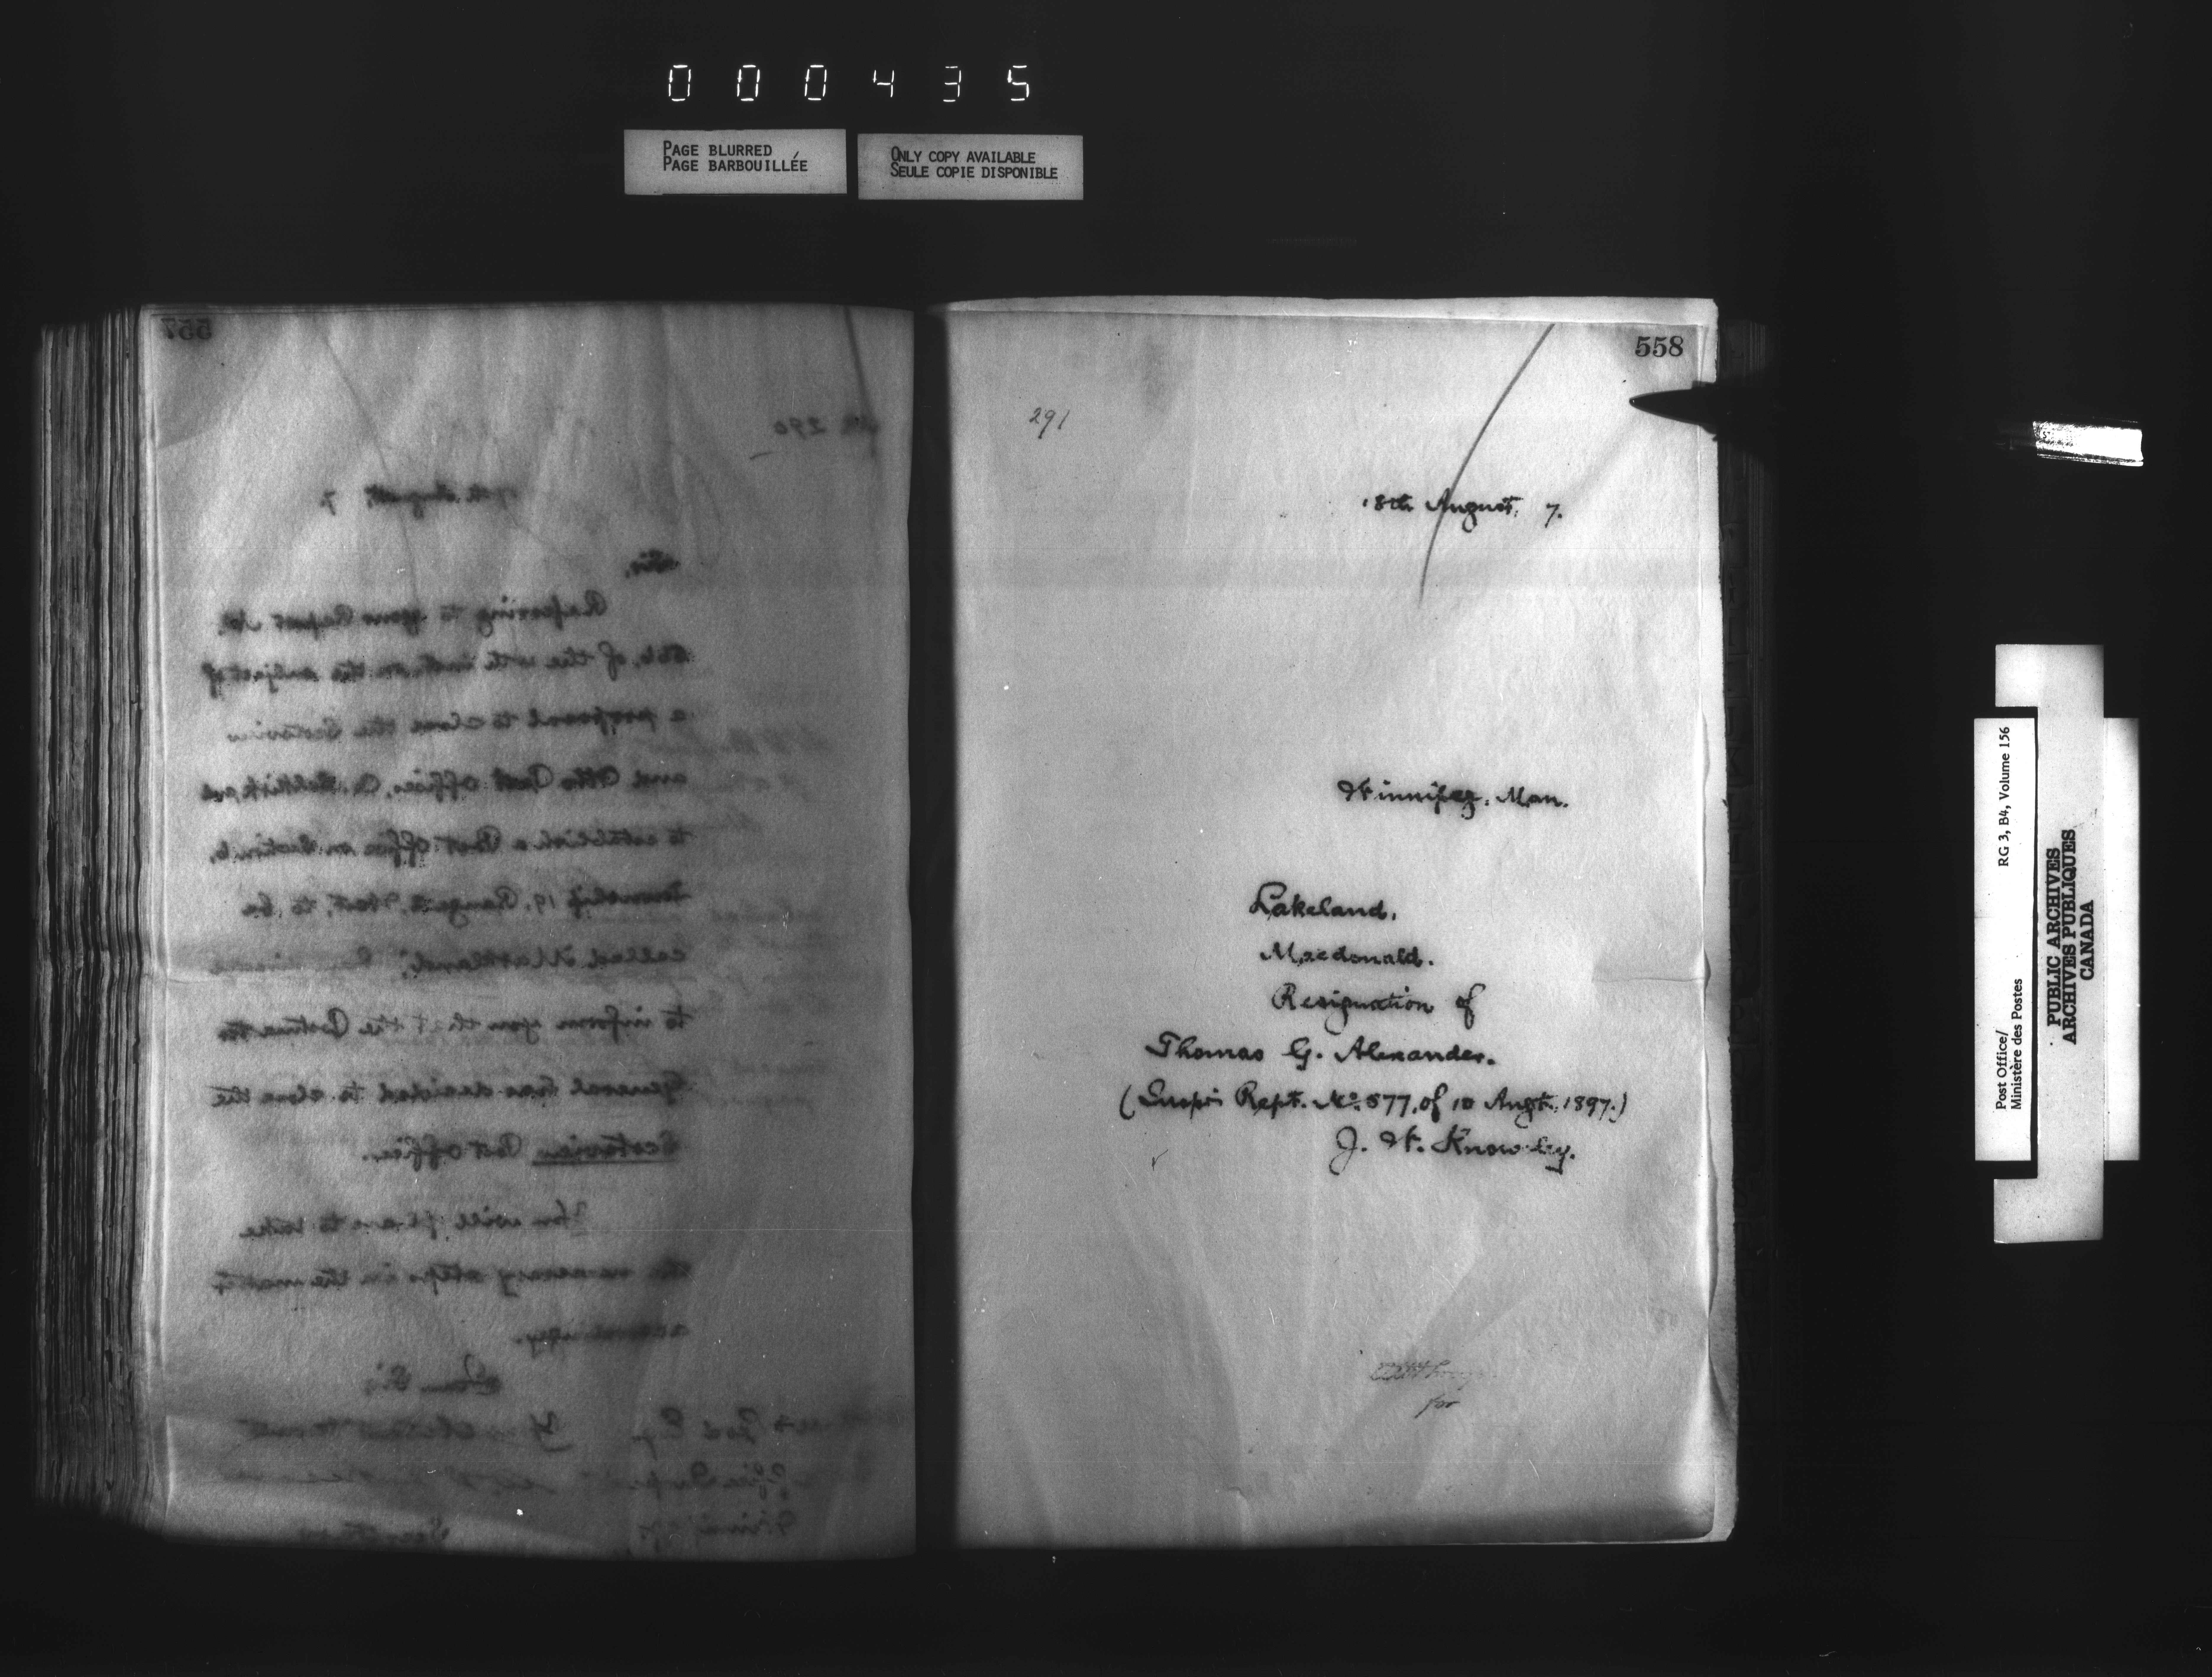 000435
PAGE BLURRED
PAGE BARBOUILLÉE
ONLY COPY AVAILABLE
SEULE COPIE DISPONIBLE
557
290
17th August, 7
Sir,
Referring to your Report No.
of the inst. on the subject of
a proposal to close the Scotsview
and Otto Post Offices, Co. Selkirk and
to establish a Post Office on Section 6,
Township 19, Range West, to be
called "Markland",
to inform you that the Postmaster
General has decided to close the
Scotsview Post Office.
You will please to take
the necessary steps in the matter
accordingly.
I am, Sir,
558
291
18th August, 7.
Winnipeg, Man.
Lakeland,
Macdonald.
Resignation of
Thomas G. Alexander.
(Inspr's Rept. No. 577, of 10 Augt. 1897.)
J. W. Knowley.
for
Post Office/
Ministère des Postes
RG 3, B4, Volume 156
PUBLIC ARCHIVES
ARCHIVES PUBLIQUES
CANADA